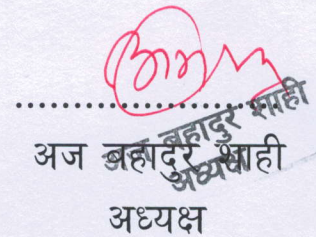 ..............................
अज बहादुर शाही
अध्यक्ष
अज बहादुर शाही
अध्यक्ष